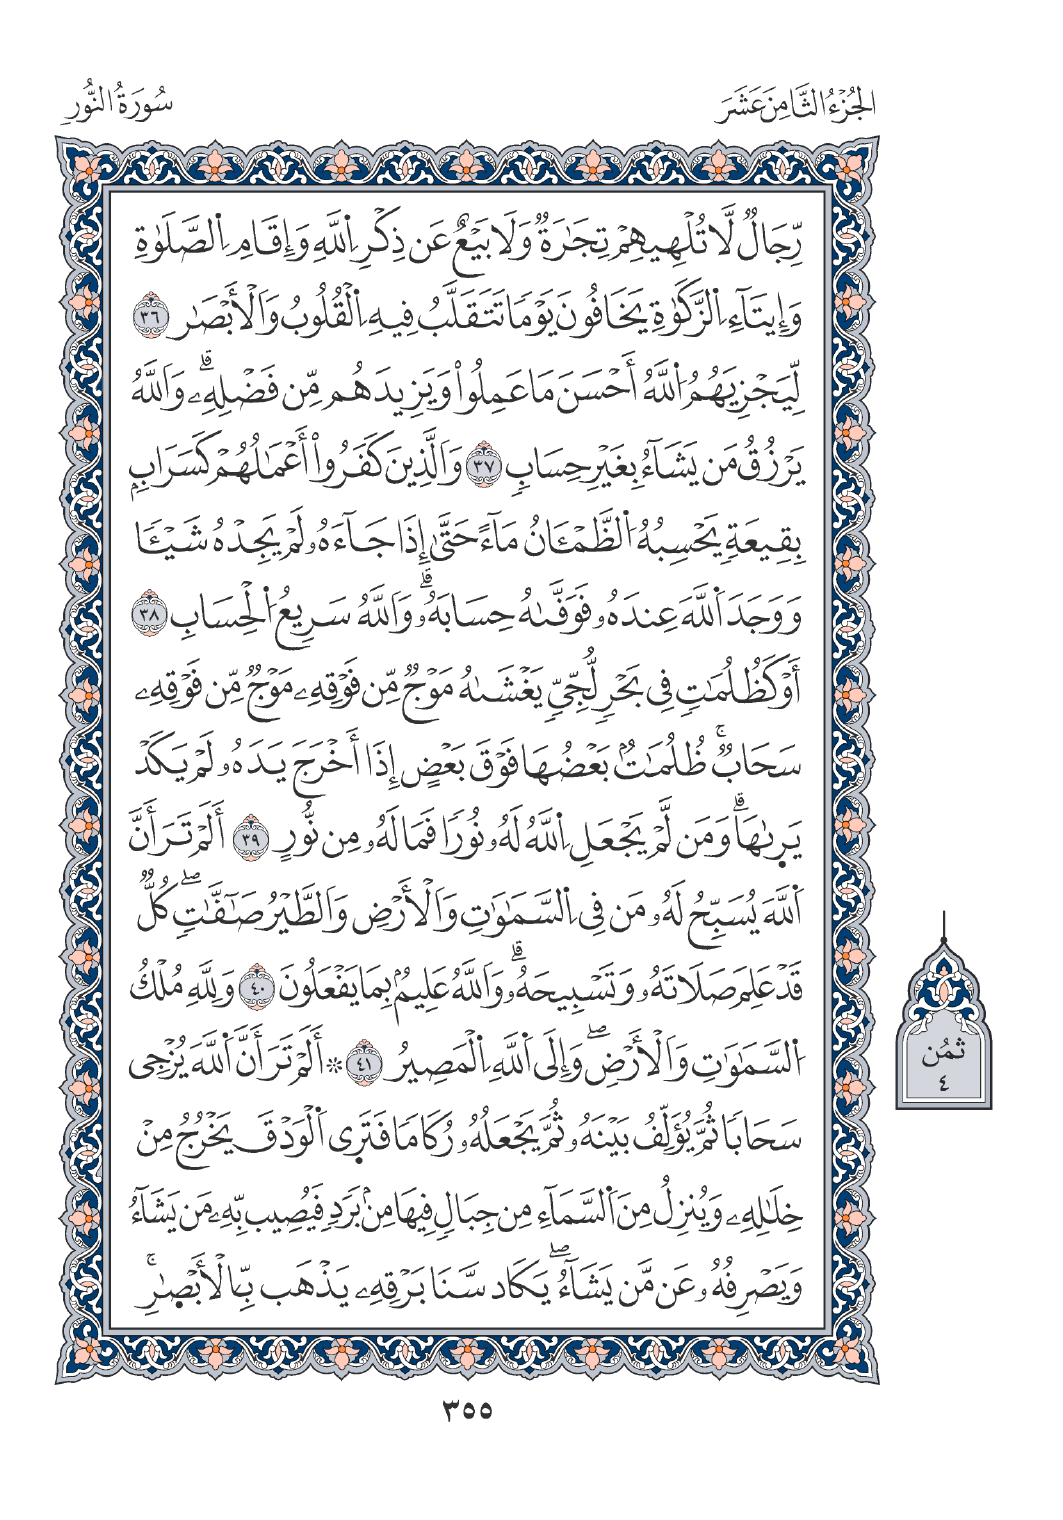 الجُزْءُ الثَّامِنَ عَشَرَ
سُورَةُ النُّور
رِّجَالٌ لَّا تُلْهِيهِمْ تِجَٰرَةٌ وَلَا بَيْعٌ عَن ذِكْرِ اِ۬للَّهِ وَإِقَامِ اِ۬لصَّلَوٰةِ
وَإِيتَآءِ اِ۬لزَّكَوٰةِ يَخَافُونَ يَوْمٗا تَتَقَلَّبُ فِيهِ اِ۬لْقُلُوبُ وَالْأَبْصَٰر ٣٦
لِّيَجْزِيَهُمُ اُ۬للَّهُ أَحْسَنَ مَا عَمِلُواْ وَيَزِيدَهُم مِّن فَضْلِهِۦۗ وَاَللَّهُ
يَرْزُقُ مَن يَشَآءُ بِغَيْرِ حِسَابٖ ٣٧ وَاَلَّذِينَ كَفَرُواْ أَعْمَٰلُهُمْ كَسَرَابِۭ
بِقِيعَةٖ يَحْسِبُهُ اُ۬لظَّمْـَٔانُ مَآءً حَتَّىٰ إِذَا جَآءَهُۥ لَمْ يَجِدْهُ شَيْـٔٗا
وَوَجَدَ اَ۬للَّهَ عِندَهُۥ فَوَفَّىٰهُ حِسَابَهُۥۗ وَاَللَّهُ سَرِيعُ اُ۬لْحِسَابِ ٣٨
أَوْ كَظُلُمَٰتٖ فِي بَحْرٖ لُّجِّيّٖ يَغْشَىٰهُ مَوْجٌ مِّن فَوْقِهِۦ مَوْجٌ مِّن فَوْقِهِۦ
سَحَابٌۚ ظُلُمَٰتُۢ بَعْضُهَا فَوْقَ بَعْضٍ إِذَا أَخْرَجَ يَدَهُۥ لَمْ يَكَدْ
يَرٜىٰهَاۗ وَمَن لَّمْ يَجْعَلِ اِ۬للَّهُ لَهُۥ نُورٗا فَمَا لَهُۥ مِن نُّورٍ ٣٩ أَلَمْ تَرَ أَنَّ
اَ۬للَّهَ يُسَبِّحُ لَهُۥ مَن فِي اِ۬لسَّمَٰوَٰتِ وَالْأَرْضِ وَالطَّيْرُ صَٰٓفَّٰتٖۖ كُلٌّ
قَدْ عَلِمَ صَلَاتَهُۥ وَتَسْبِيحَهُۥۗ وَاَللَّهُ عَلِيمُۢ بِمَا يَفْعَلُونَ ٤٠ وَلِلَّهِ مُلْكُ
اُ۬لسَّمَٰوَٰتِ وَالْأَرْضِۖ وَإِلَى اَ۬للَّهِ اِ۬لْمَصِيرُ ٤١ ۞ أَلَمْ تَرَ أَنَّ اَ۬للَّهَ يُزْجِي
سَحَابٗا ثُمَّ يُؤَلِّفُ بَيْنَهُۥ ثُمَّ يَجْعَلُهُۥ رُكَامٗا فَتَرَى اَ۬لْوَدْقَ يَخْرُجُ مِنْ
خِلَٰلِهِۦ وَيُنزِلُ مِنَ اَ۬لسَّمَآءِ مِن جِبَالٖ فِيهَا مِنۢ بَرَدٖ فَيُصِيب بِّهِۦ مَن يَشَآءُ
وَيَصْرِفُهُۥ عَن مَّن يَشَآءُۖ يَكَاد سَّنَا بَرْقِهِۦ يَذْهَب بِّالْأَبْصٰٜرِۚ
ثمُن
٤
٣٥٥